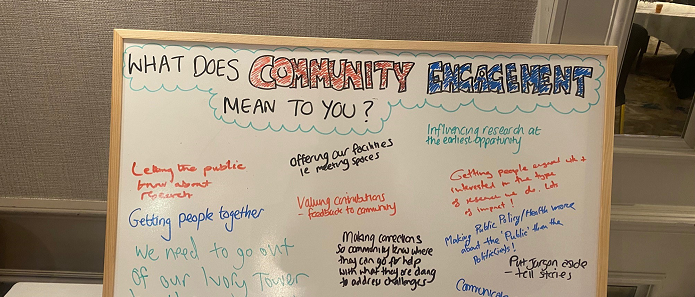 WHAT DOES COMMUNITY ENGAGEMENT
MEAN TO YOU?
Influencing research at
the earliest opportunity
Offering our facilities
ie meeting spaces
Letting the public
know about
research
Getting people
interested in the type
of research we do. Lots
of impact!
Valuing contributions
- feedback to community
Getting people together
Making Public Policy/Health more
about the 'Public' than the
Politicians!
Making connections
so community know where
they can go for help
with what they are doing
to address challenges
We need to go out
of our Ivory Tower
Put jargon aside
- tell stories